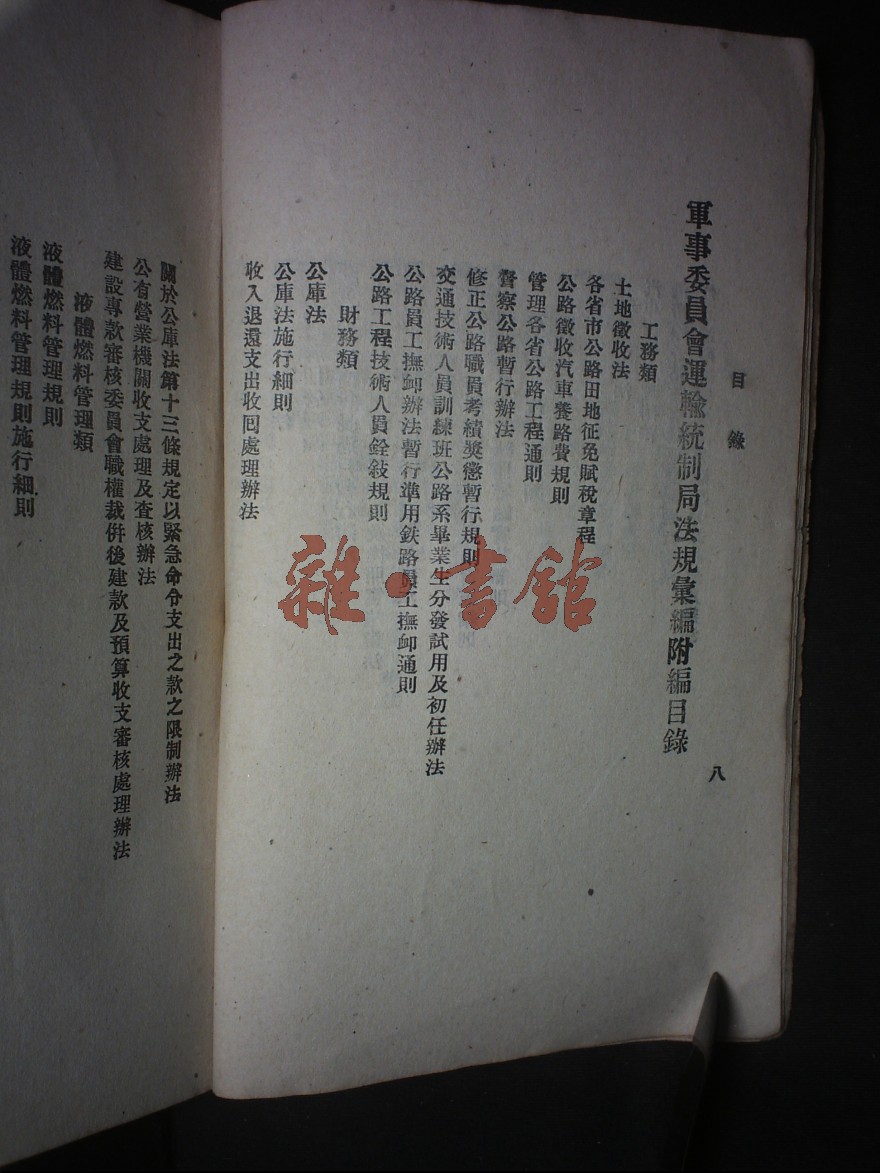 目錄
八
軍事委員會運輸統制局法規彙編附編目錄
工務類
土地徵收法
各省市公路田地征免賦稅章程
公路徵收汽車養路費規則
管理各省公路工程通則
督察公路暫行辦法
修正公路職員考績獎懲暫行規則
交通技術人員訓練班公路系畢業生分發試用及初任辦法
公路員工撫卹辦法暫行準用鉄路員工撫卹通則
公路工程技術人員銓敍規則
財務類
公庫法
公庫法施行細則
收入退還支出收回處理辦法
關於公庫法第十三條規定以緊急命令支出之款之限制辦法
公有營業機關收支處理及查核辦法
建設專款審核委員會職權裁併後建款及預算收支審核處理辦法
液體燃料管理類
液體燃料管理規則
液體燃料管理規則施行細則
雜·書館